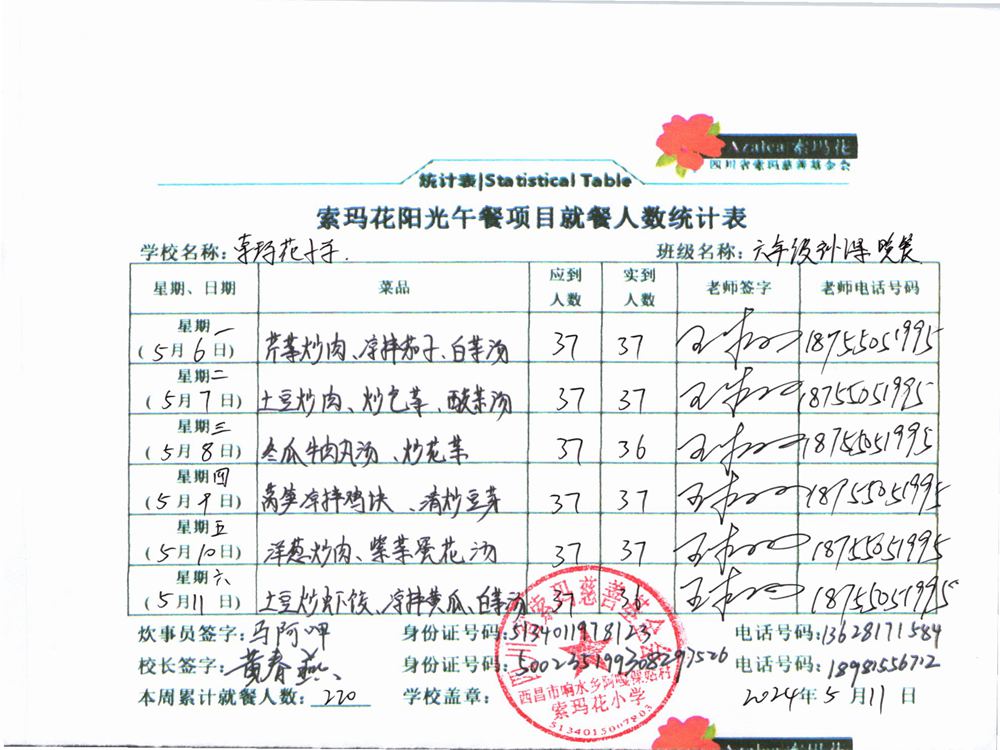 Azalea 索玛花
四川省索玛慈善基金会
统计表|Statistical Table
索玛花阳光午餐项目就餐人数统计表
学校名称：索玛花小学. 班级名称：六年级 晚餐
星期、日期 菜品 应到人数 实到人数 老师签字 老师电话号码
星期一 (5月6日) 芹菜炒肉、凉拌茄子、白菜汤 37 37 18755051995
星期二 (5月7日) 土豆炒肉、炒包菜、酸菜汤 37 37 18755051995
星期三 (5月8日) 冬瓜牛肉丸汤、炒花菜 37 36 18755051995
星期四 (5月9日) 莴笋凉拌鸡块、清炒豆芽 37 37 18755051995
星期五 (5月10日) 洋葱炒肉、紫菜蛋花汤 37 37 18755051995
星期六 (5月11日) 土豆炒虾饺、凉拌黄瓜、白菜汤 37 36 18755051995
炊事员签字：马阿呷 身份证号码： 电话号码：13628171584
校长签字：黄春燕 身份证号码： 电话号码：18981556712
本周累计就餐人数：220 学校盖章： 2024年5月11日
西昌市响水乡
索玛花小学
5134015007803